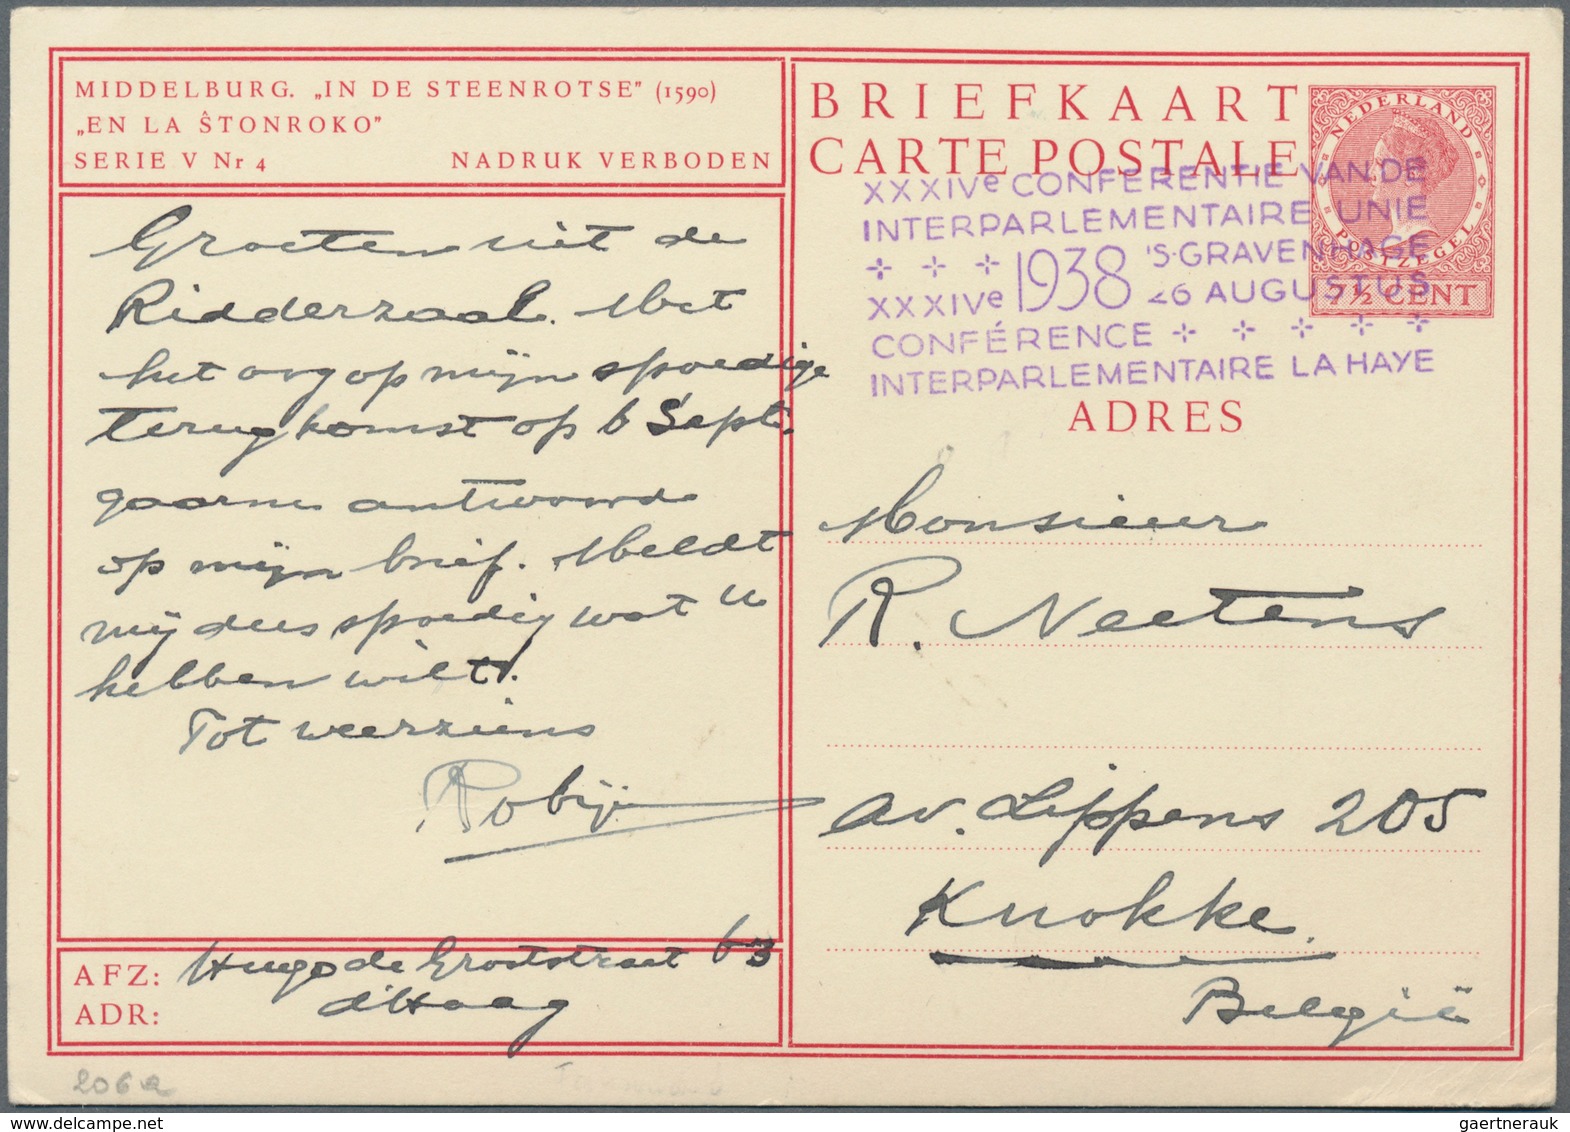 MIDDELBURG. „IN DE STEENROTSE" (1590)
„EN LA ŜTONROKO"
SERIE V Nr 4 NADRUK VERBODEN
Groeten uit de
Ridderzaal. Met
het oog op mijn spoedige
terugkomst op 6 Sept.
gaarne antwoord
op mijn brief. Meldt
mij dus spoedig wat U
hebben wilt.
Tot weerziens
Robijn
AFZ: Hugo de Grootstraat 63
ADR: d'Haag
206a
BRIEFKAART
CARTE POSTALE
NEDERLAND
POSTZEGEL
7½ CENT
XXXIVe CONFERENTIE VAN DE
INTERPARLEMENTAIRE UNIE
1938 'S-GRAVENHAGE
XXXIVe 26 AUGUSTUS
CONFÉRENCE
INTERPARLEMENTAIRE LA HAYE
ADRES
Monsieur
R. Neetens
av. Lippens 205
Knokke.
België
gaertnerauk @ delcampe.net